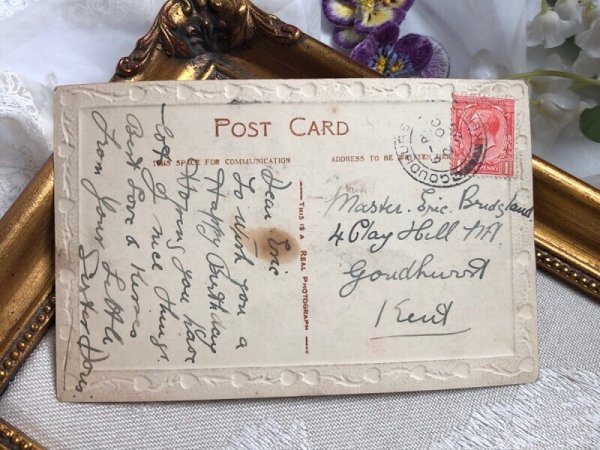 POST CARD
THIS SPACE FOR COMMUNICATION
ADDRESS TO BE WRITTEN HERE
Dear Eric
To wish you a
Happy Birthday
Hoping you have
lots of nice things
Best Love & Kisses
From Your Little
Sister Doris
THIS IS A REAL PHOTOGRAPH
Master. Eric. Bridgland
4 Clay Hill
Goudhurst
Kent
GOUDHURST
PENNY